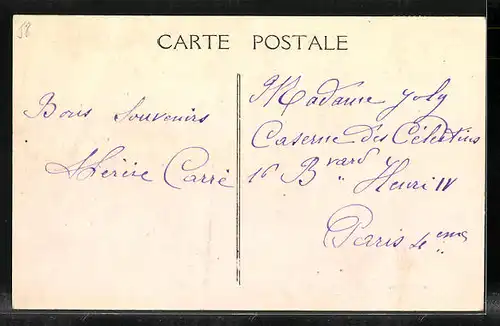 58
CARTE POSTALE
Bons Souvenirs
Carré
Madame Joly
Caserne des Célestins
16 Bvard Henri IV
Paris 4eme